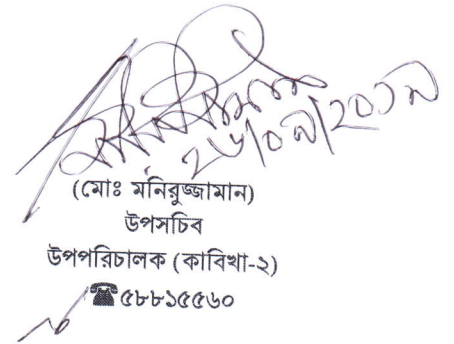 ২৬/০৯/২০১৯
(মোঃ মনিরুজ্জামান)
উপসচিব
উপপরিচালক (কাবিখা-২)
☎৫৮৮১৫৫৬০